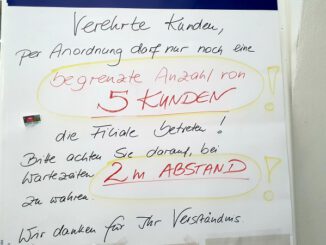 Verehrte Kunden,
per Anordnung darf nur noch eine
begrenzte Anzahl von
5 KUNDEN
die Filiale betreten!
Bitte achten Sie darauf, bei
Wartezeiten 2m ABSTAND!
zu wahren.
Wir danken für Ihr Verständnis